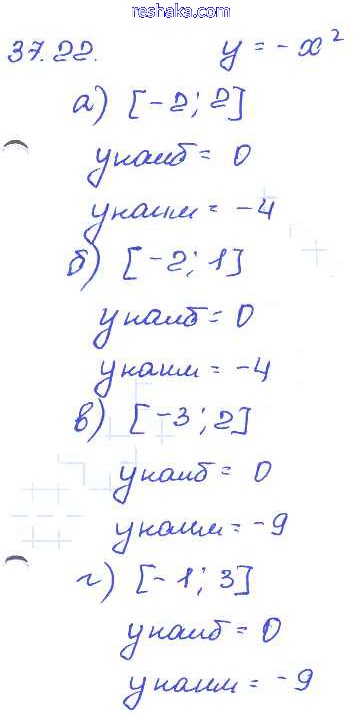 reshaka.com
37.22. y = -x²
а) [-2; 2]
yнаиб = 0
yнаим = -4
б) [-2; 1]
yнаиб = 0
yнаим = -4
в) [-3; 2]
yнаиб = 0
yнаим = -9
г) [-1; 3]
yнаиб = 0
yнаим = -9